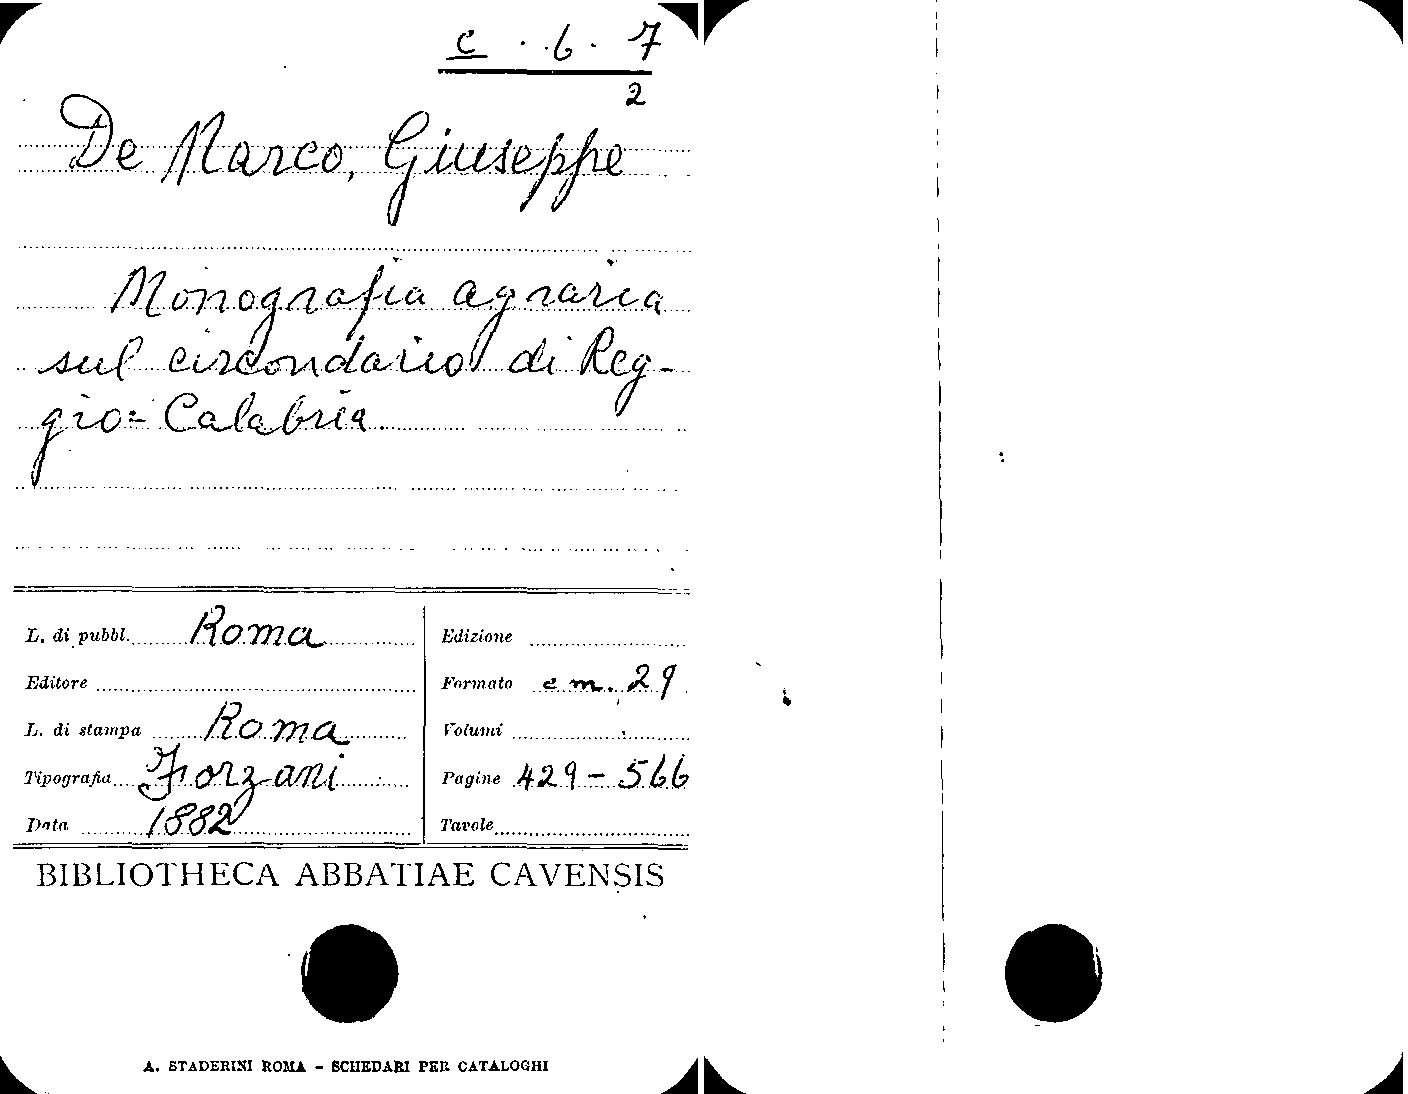 c . 6 . 7
2
De Marco, Giuseppe
Monografia agraria
sul circondario di Reg-
gio=Calabria.
L. di pubbl. Roma
Editore
L. di stampa Roma
Tipografia Forzani
Data 1882
Edizione
Formato cm. 29
Volumi
Pagine 429-566
Tavole
BIBLIOTHECA ABBATIAE CAVENSIS
A. STADERINI ROMA - SCHEDARI PER CATALOGHI